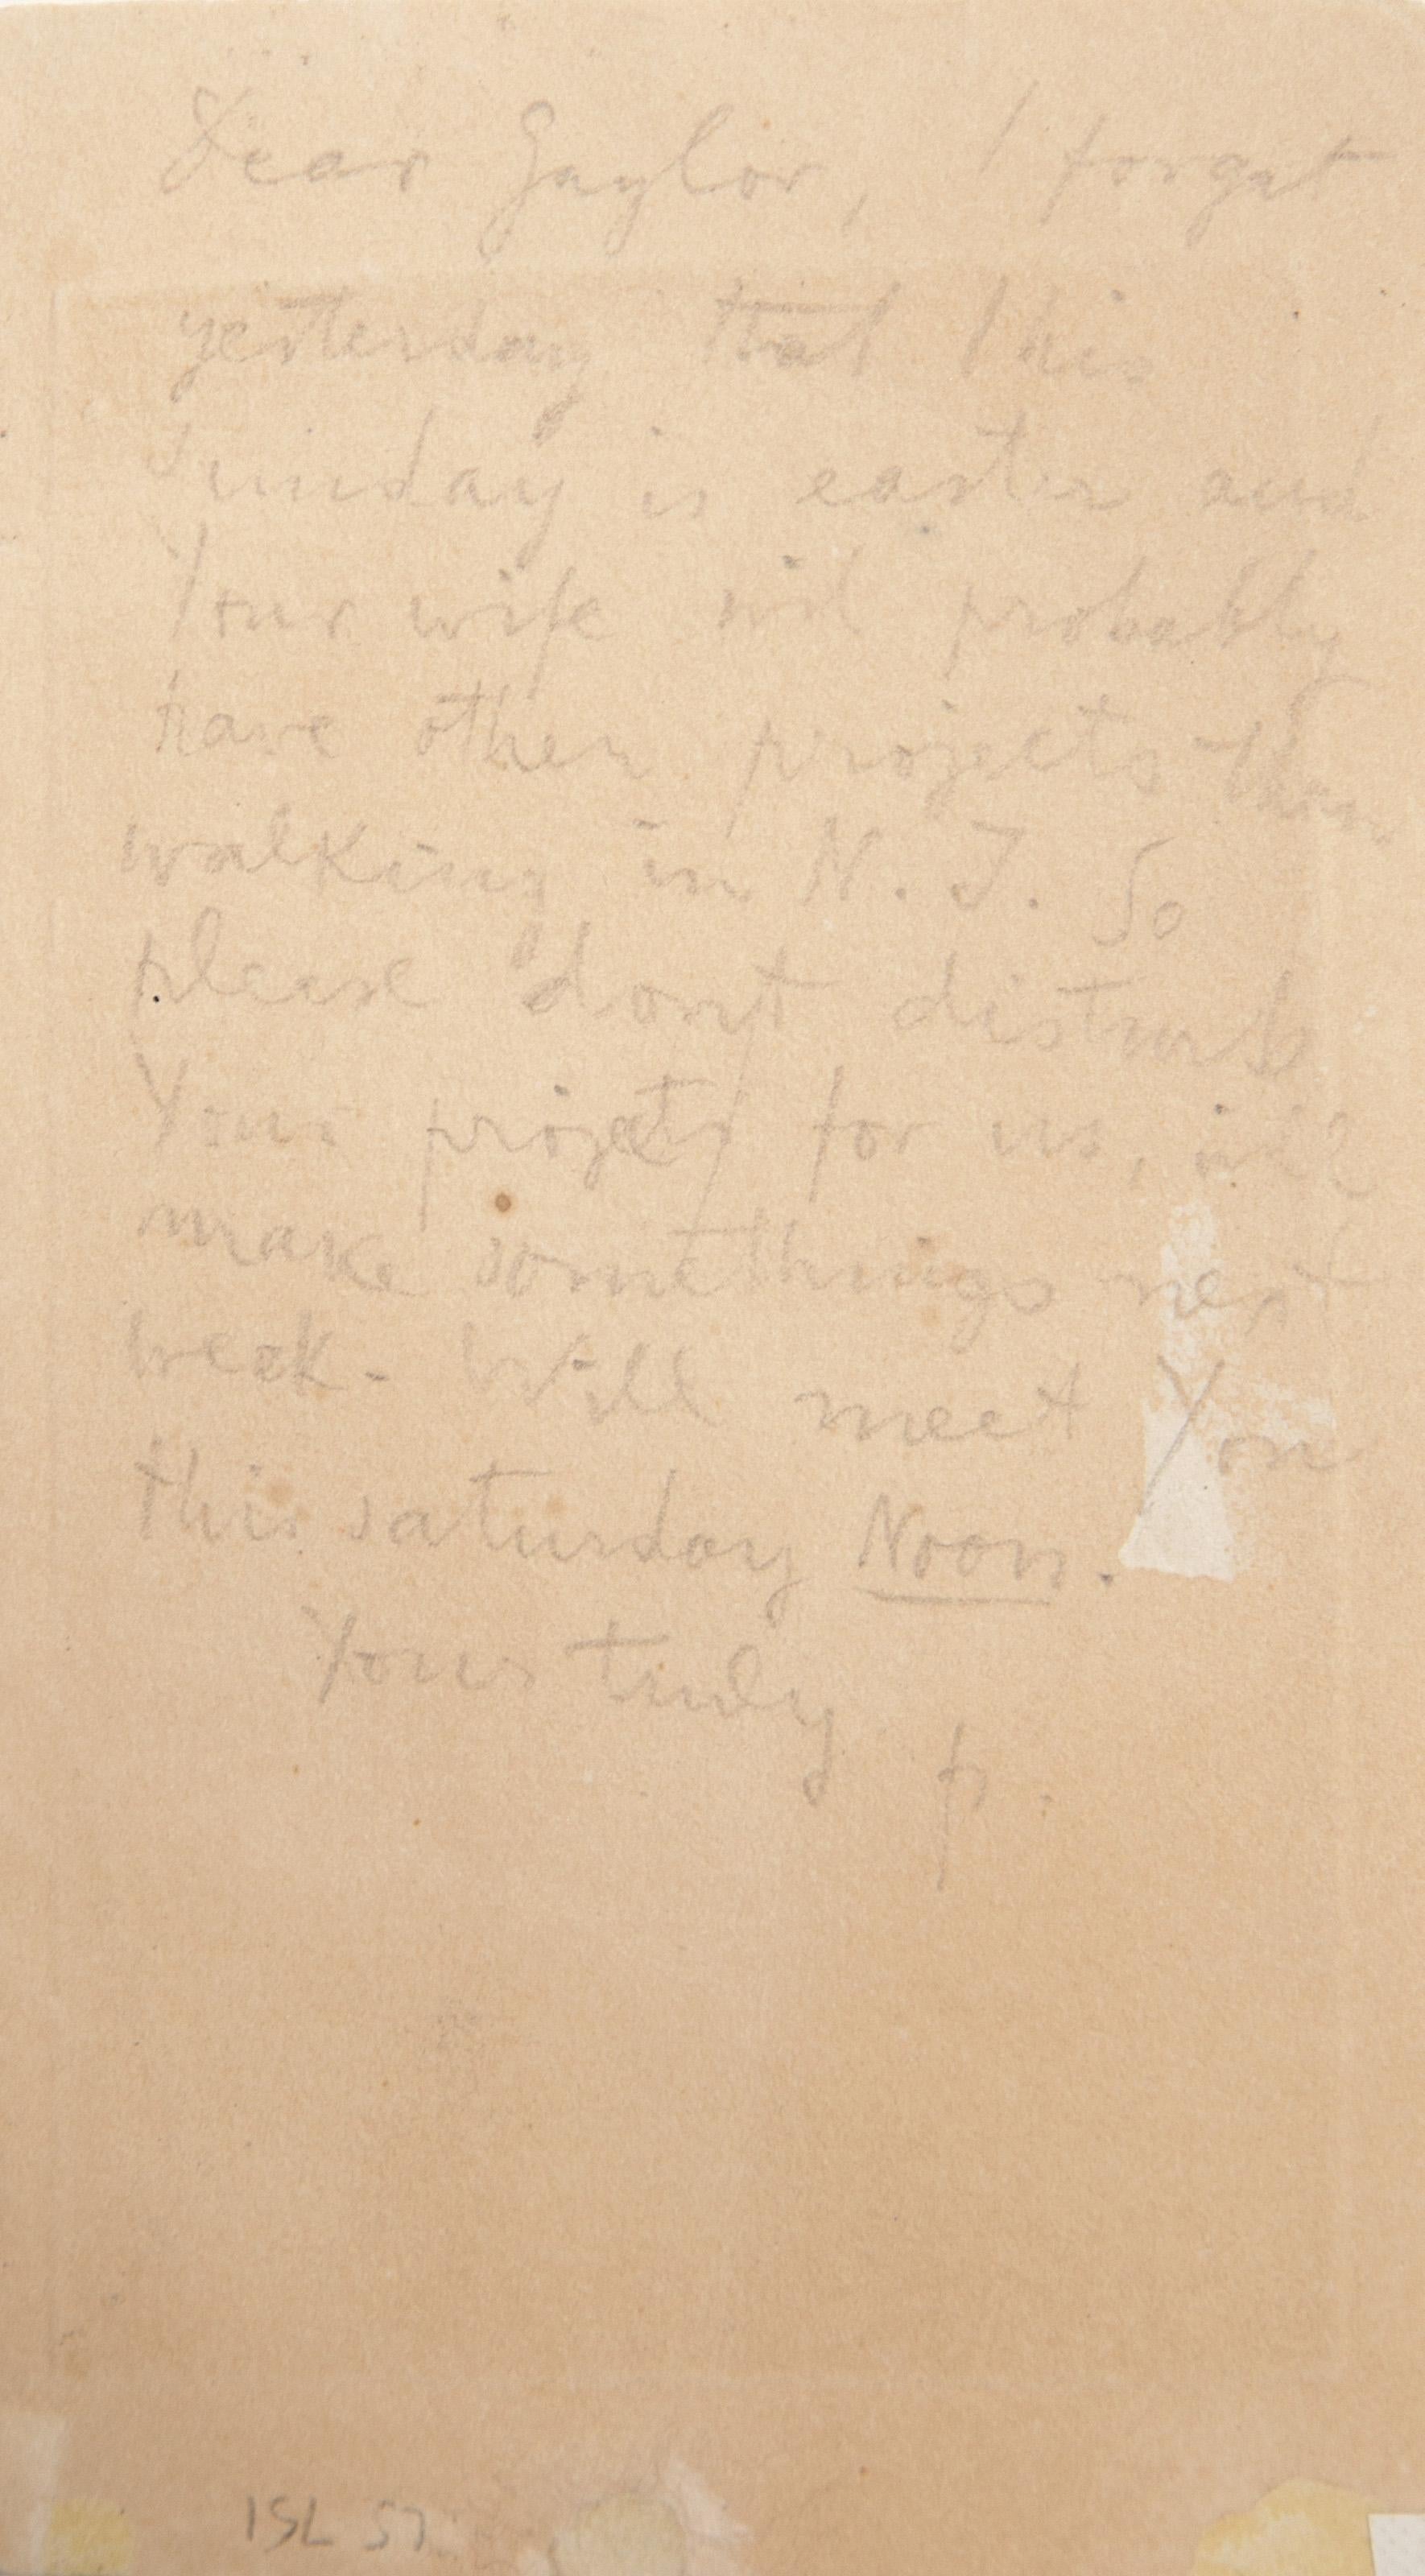 Dear Gaylor, I forgot
yesterday that this
Sunday is easter and
Your wife will probably
have other projects than
walking in N. J. So
please don't disturb
Your projets for us, will
make somethings next
week. Will meet You
this saturday Noon.
Yours truly
p.
ISL 57